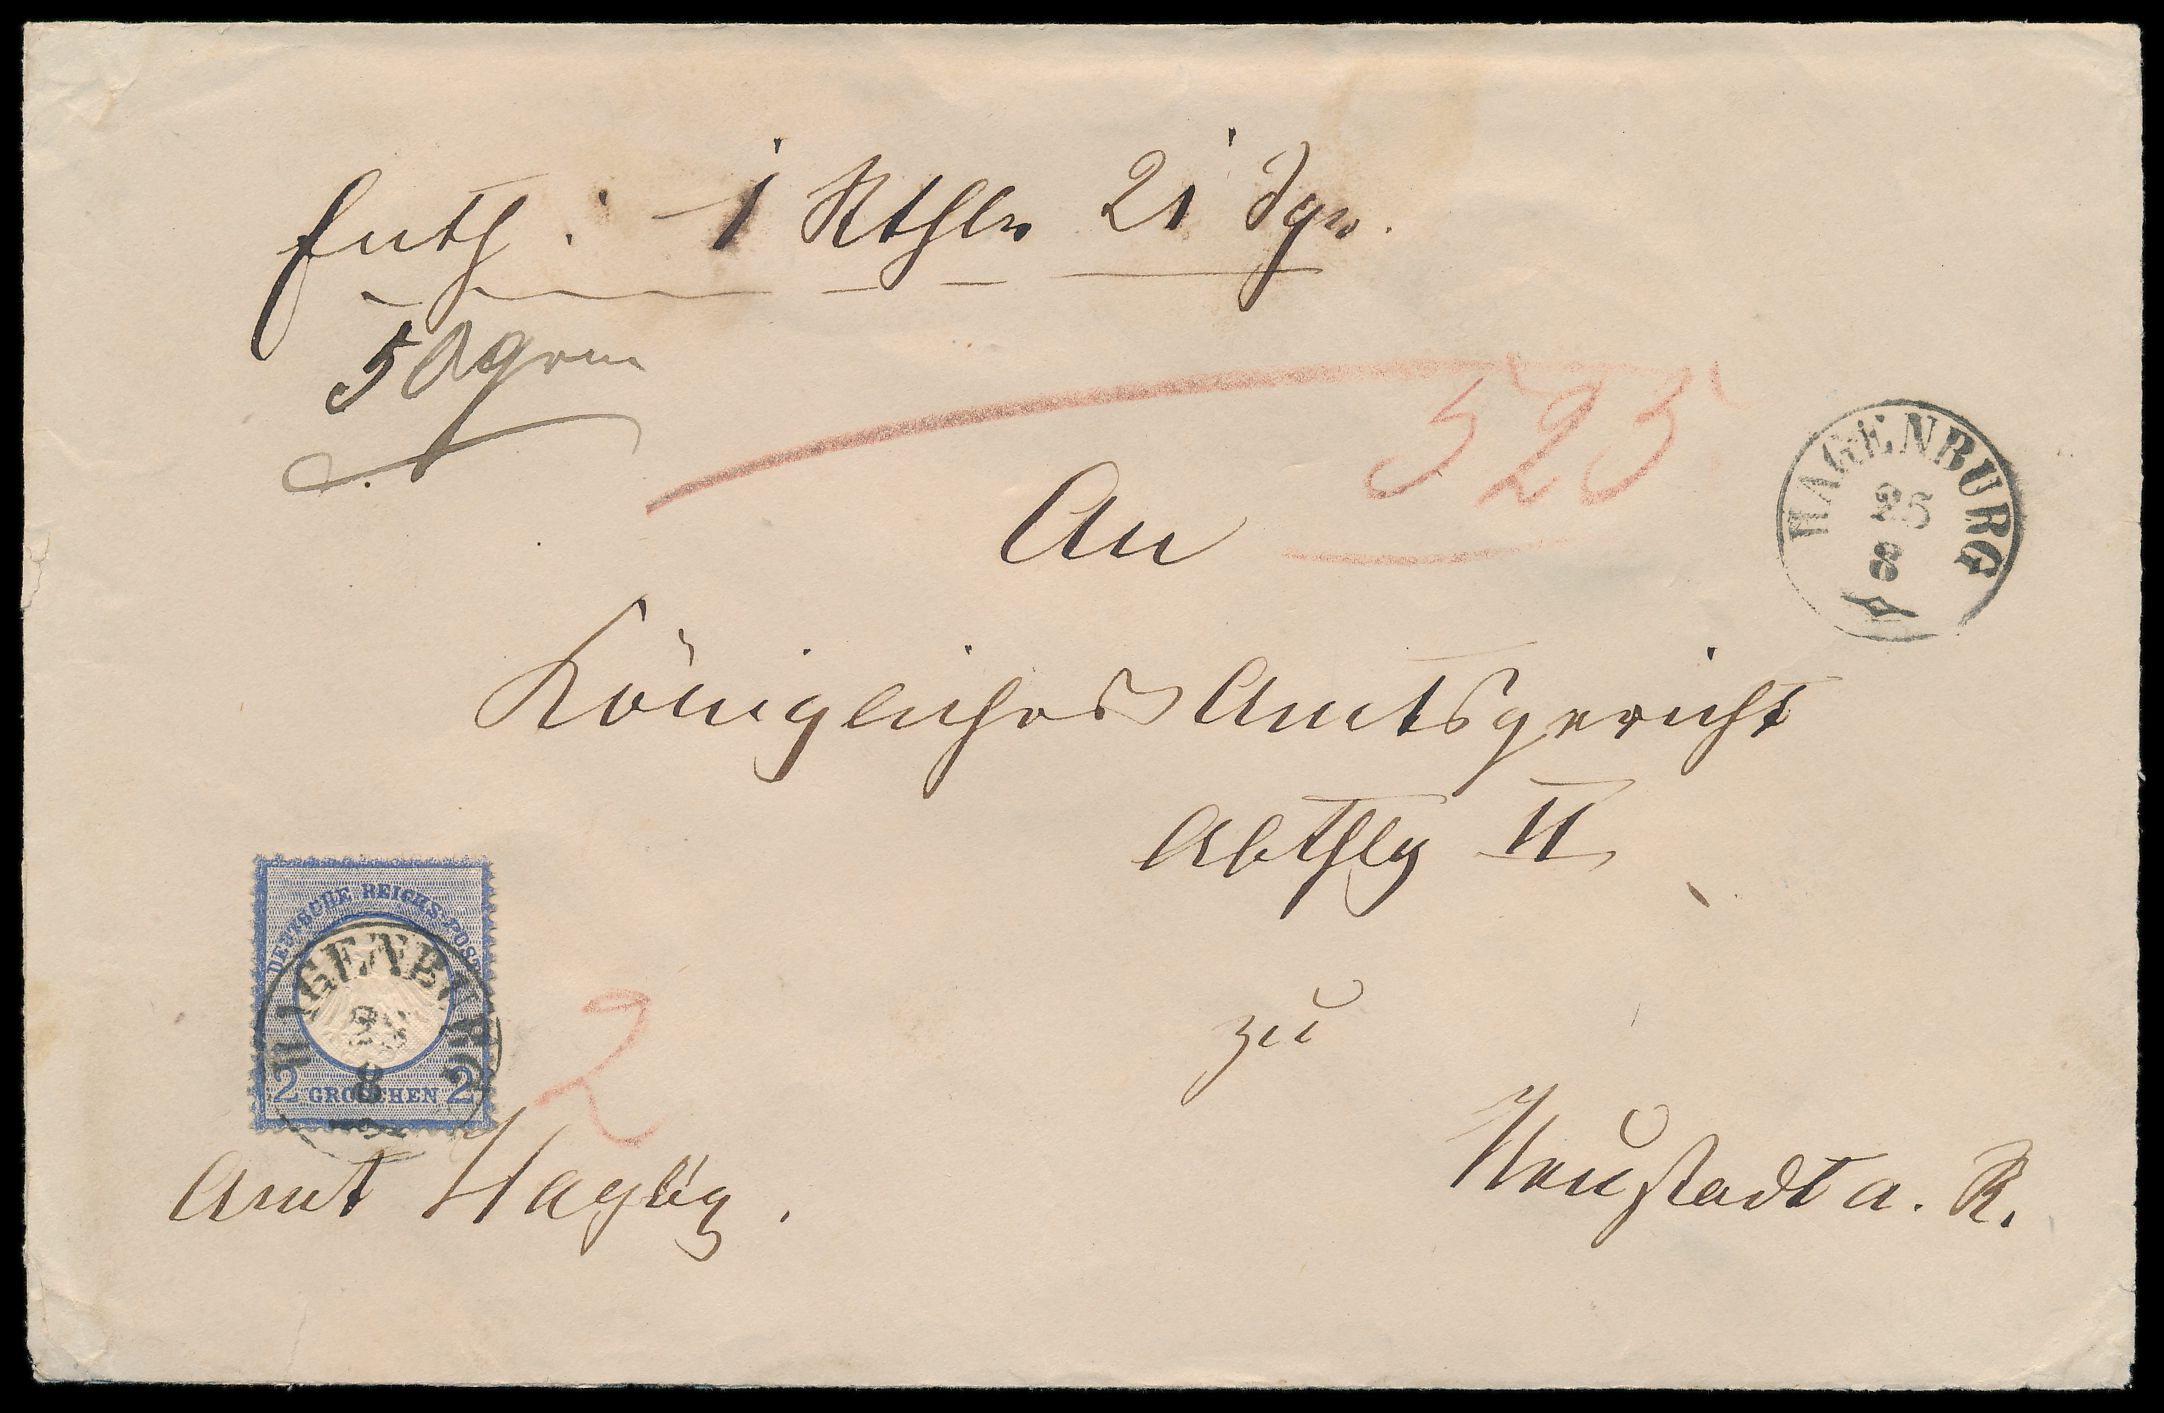 Enth: 1 Rthlr 21 Sgr.
50 grm
523
HAGENBURG
25
8
An
Königliches Amtsgericht
Abthlg II
zu
Neustadt a. R.
DEUTSCHE REICHS-POST
2 GROSCHEN 2
HAGENBURG
8
2
Amt Hagbg.